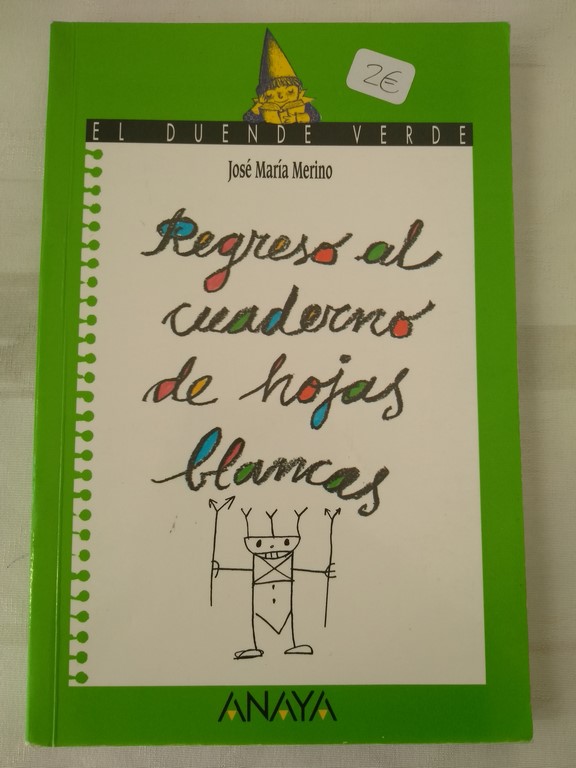 2€
EL DUENDE VERDE
José María Merino
Regreso al
cuaderno
de hojas
blancas
ANAYA